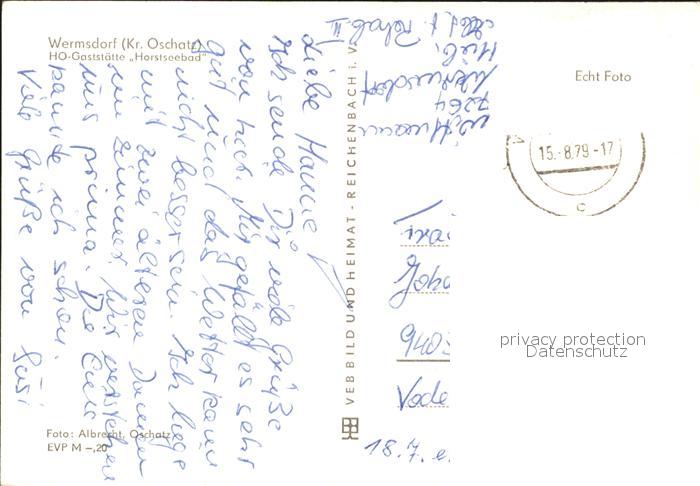 Wermsdorf (Kr. Oschatz)
HO-Gaststätte „Horstseebad"
Liebe Hanne!
Ich sende Dir viele Grüße
von hier. Mir gefällt es sehr
gut und das Wetter kann
nicht besser sein. Ich liege
mit zwei älteren Damen
im Zimmer. Wir verstehen
uns prima. Die
kannte ich schon.
Viele Grüße von Susi
Foto: Albrecht, Oschatz
EVP M –,20
VEB BILD UND HEIMAT · REICHENBACH i. V.
7264
Wermsdorf
Hub.
Echt Foto
15.-8.79-17
c
Joha
9403
Vode
18.7. e.
privacy protection
Datenschutz